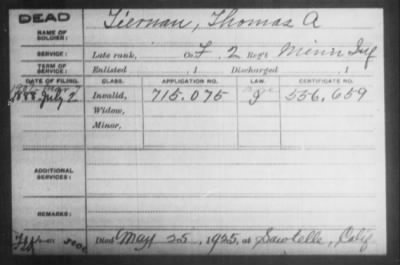 DEAD
NAME OF SOLDIER:
Tiernan, Thomas A
SERVICE:
Late rank, Co F, 2 Reg't Minn Inf
TERM OF SERVICE:
Enlisted , 1 Discharged , 1
DATE OF FILING. CLASS. APPLICATION NO. LAW. CERTIFICATE NO.
1888 July 2 Invalid, 715.075 556.659
Widow,
Minor,
ADDITIONAL SERVICES:
REMARKS:
Died May 25, 1925, at Sawtelle, Calif